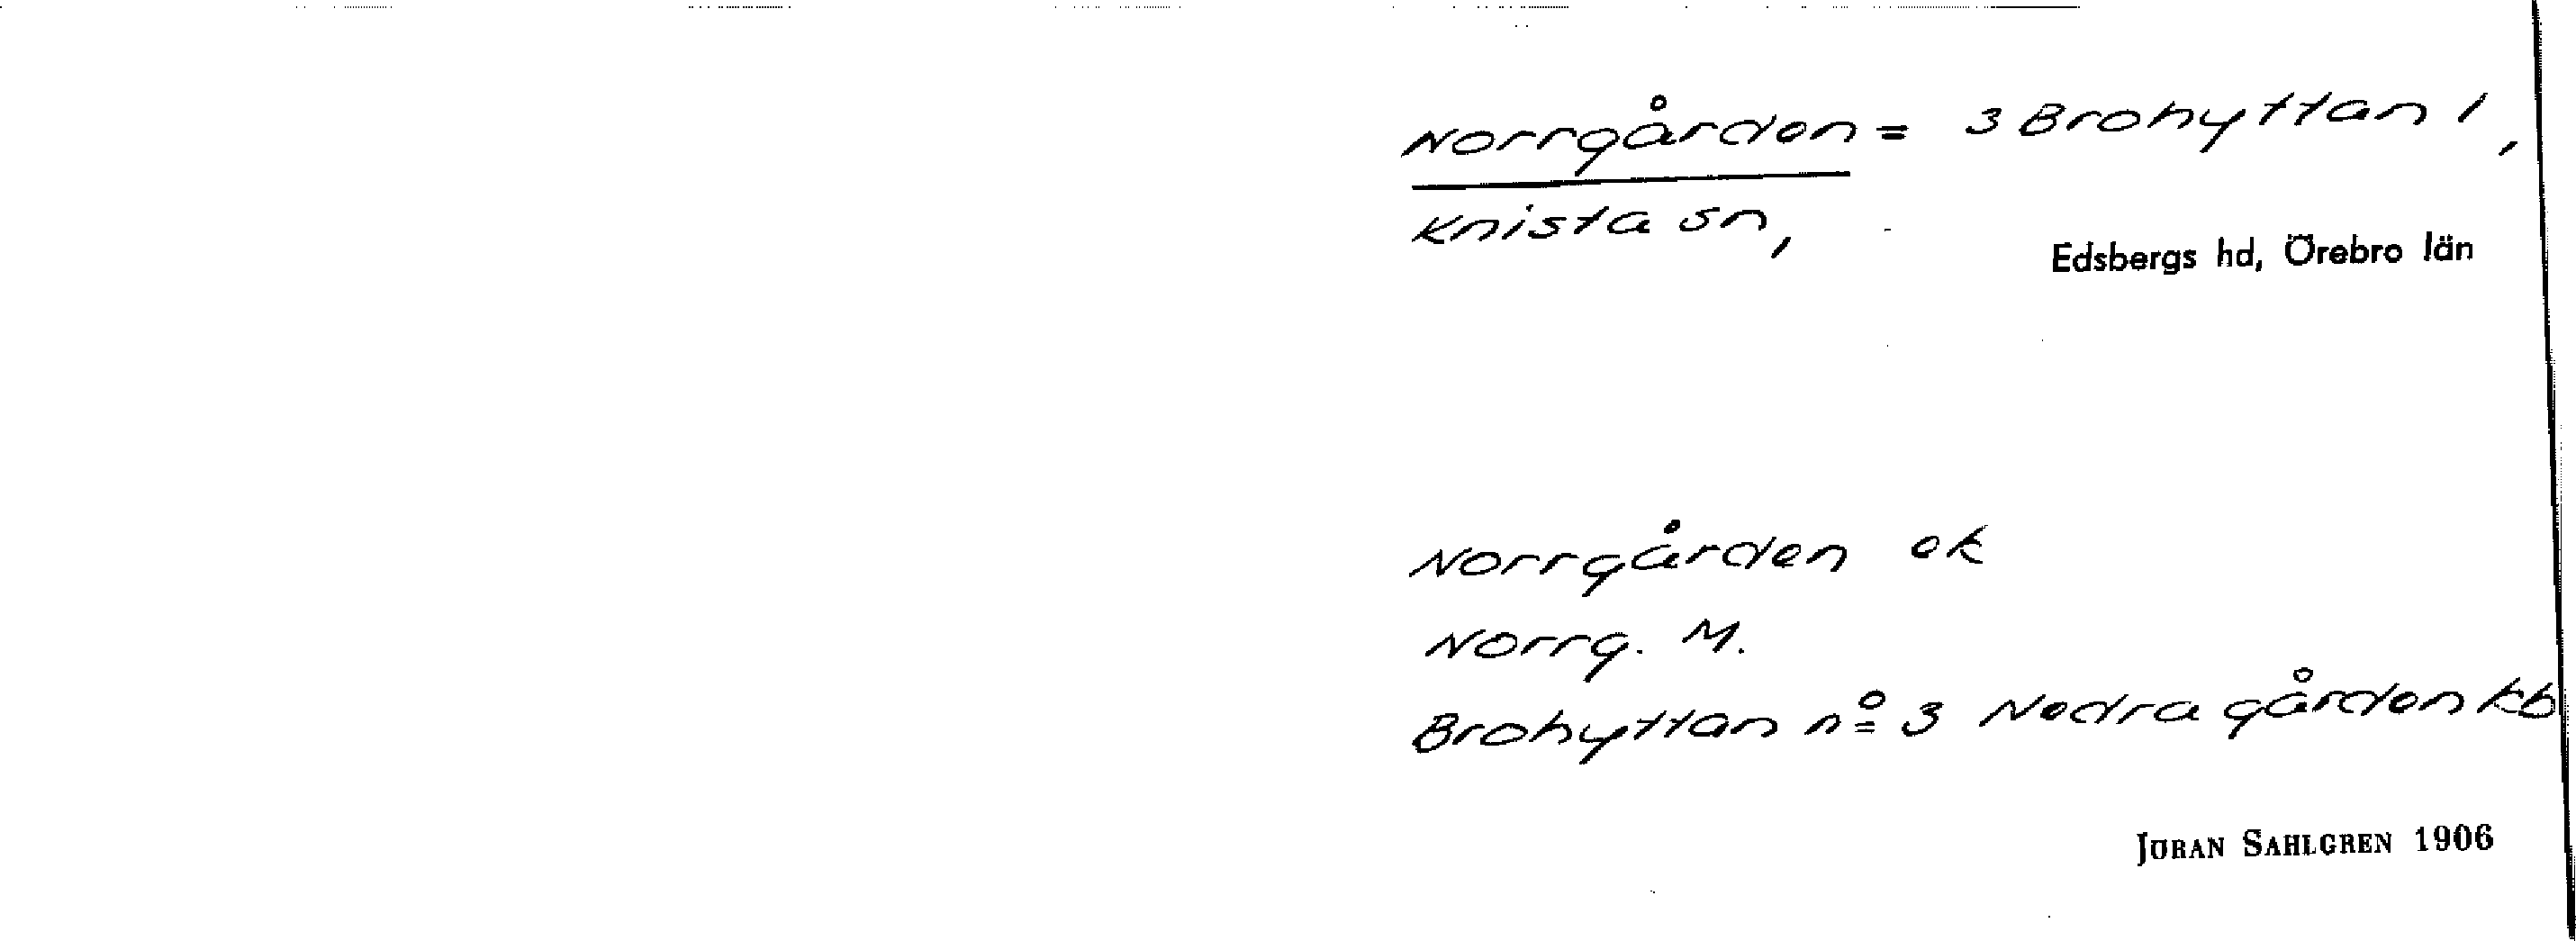 Norrgården = 3 Brohyttan 1,
Knista sn,
Edsbergs hd, Örebro län
Norrgården ek
Norrg. M.
Brohyttan nº 3 Nedra gården kb
JÖRAN SAHLGREN 1906